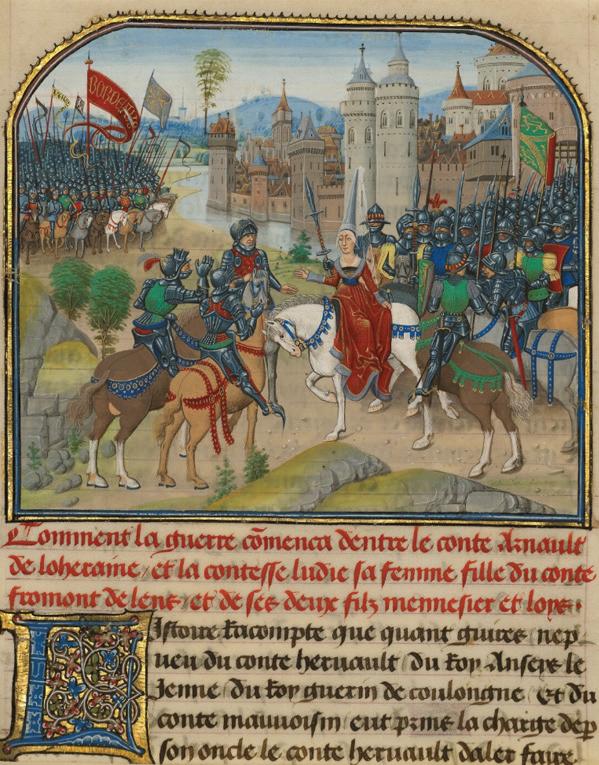 BORDEAULX
Comment la guerre cōmenca dentre le conte Arnault
de loheraine / et la contesse ludie sa femme fille du conte
fromont de lens / et de ses deux filz mennesier et loys .
Istoire Racompte que quant guires nep
ueu du conte heruault / Du Roy Anseys le
Jenne / Du Roy guerin de coulongne / et du
conte mauuoisin eut prins la charge de p
son oncle le conte heruault daler faire